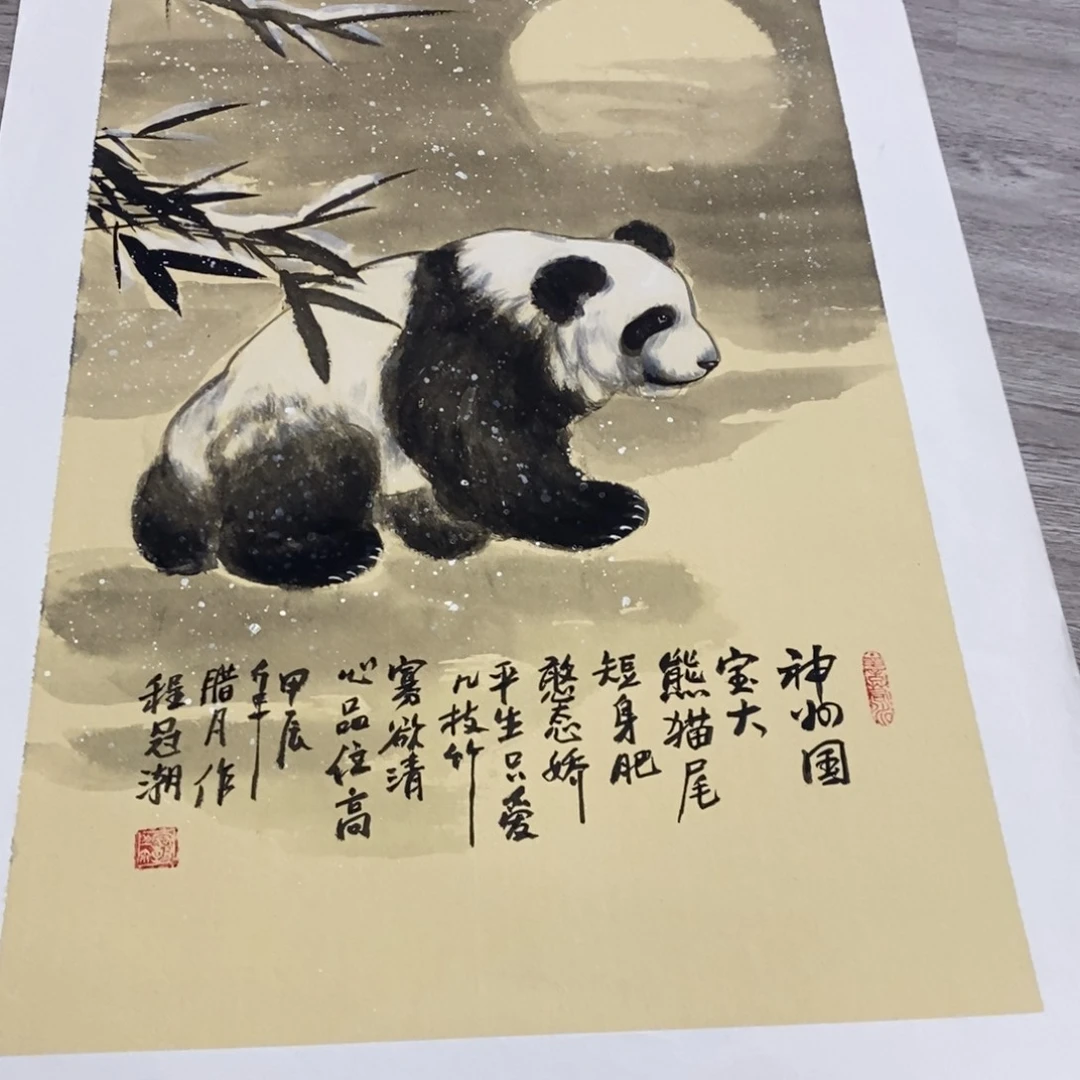 神州国
宝大
熊猫尾
短身肥
憨态娇
平生只爱
几枝竹
寡欲清
心品位高
甲辰
年
腊月作
程 潮